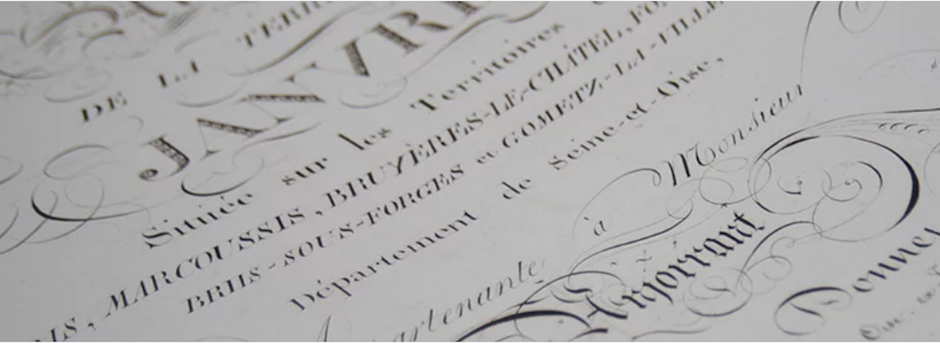 DE LA TERR
JANVRI
Située sur les Territoires
IS, MARCOUSSIS, BRUYÈRES-LE-CHÂTEL, FO
BRIIS-SOUS-FORGES et GOMETZ-LA-VILLE
Département de Seine-et-Oise,
Appartenante à Monsieur
Anjorrant
Bonne